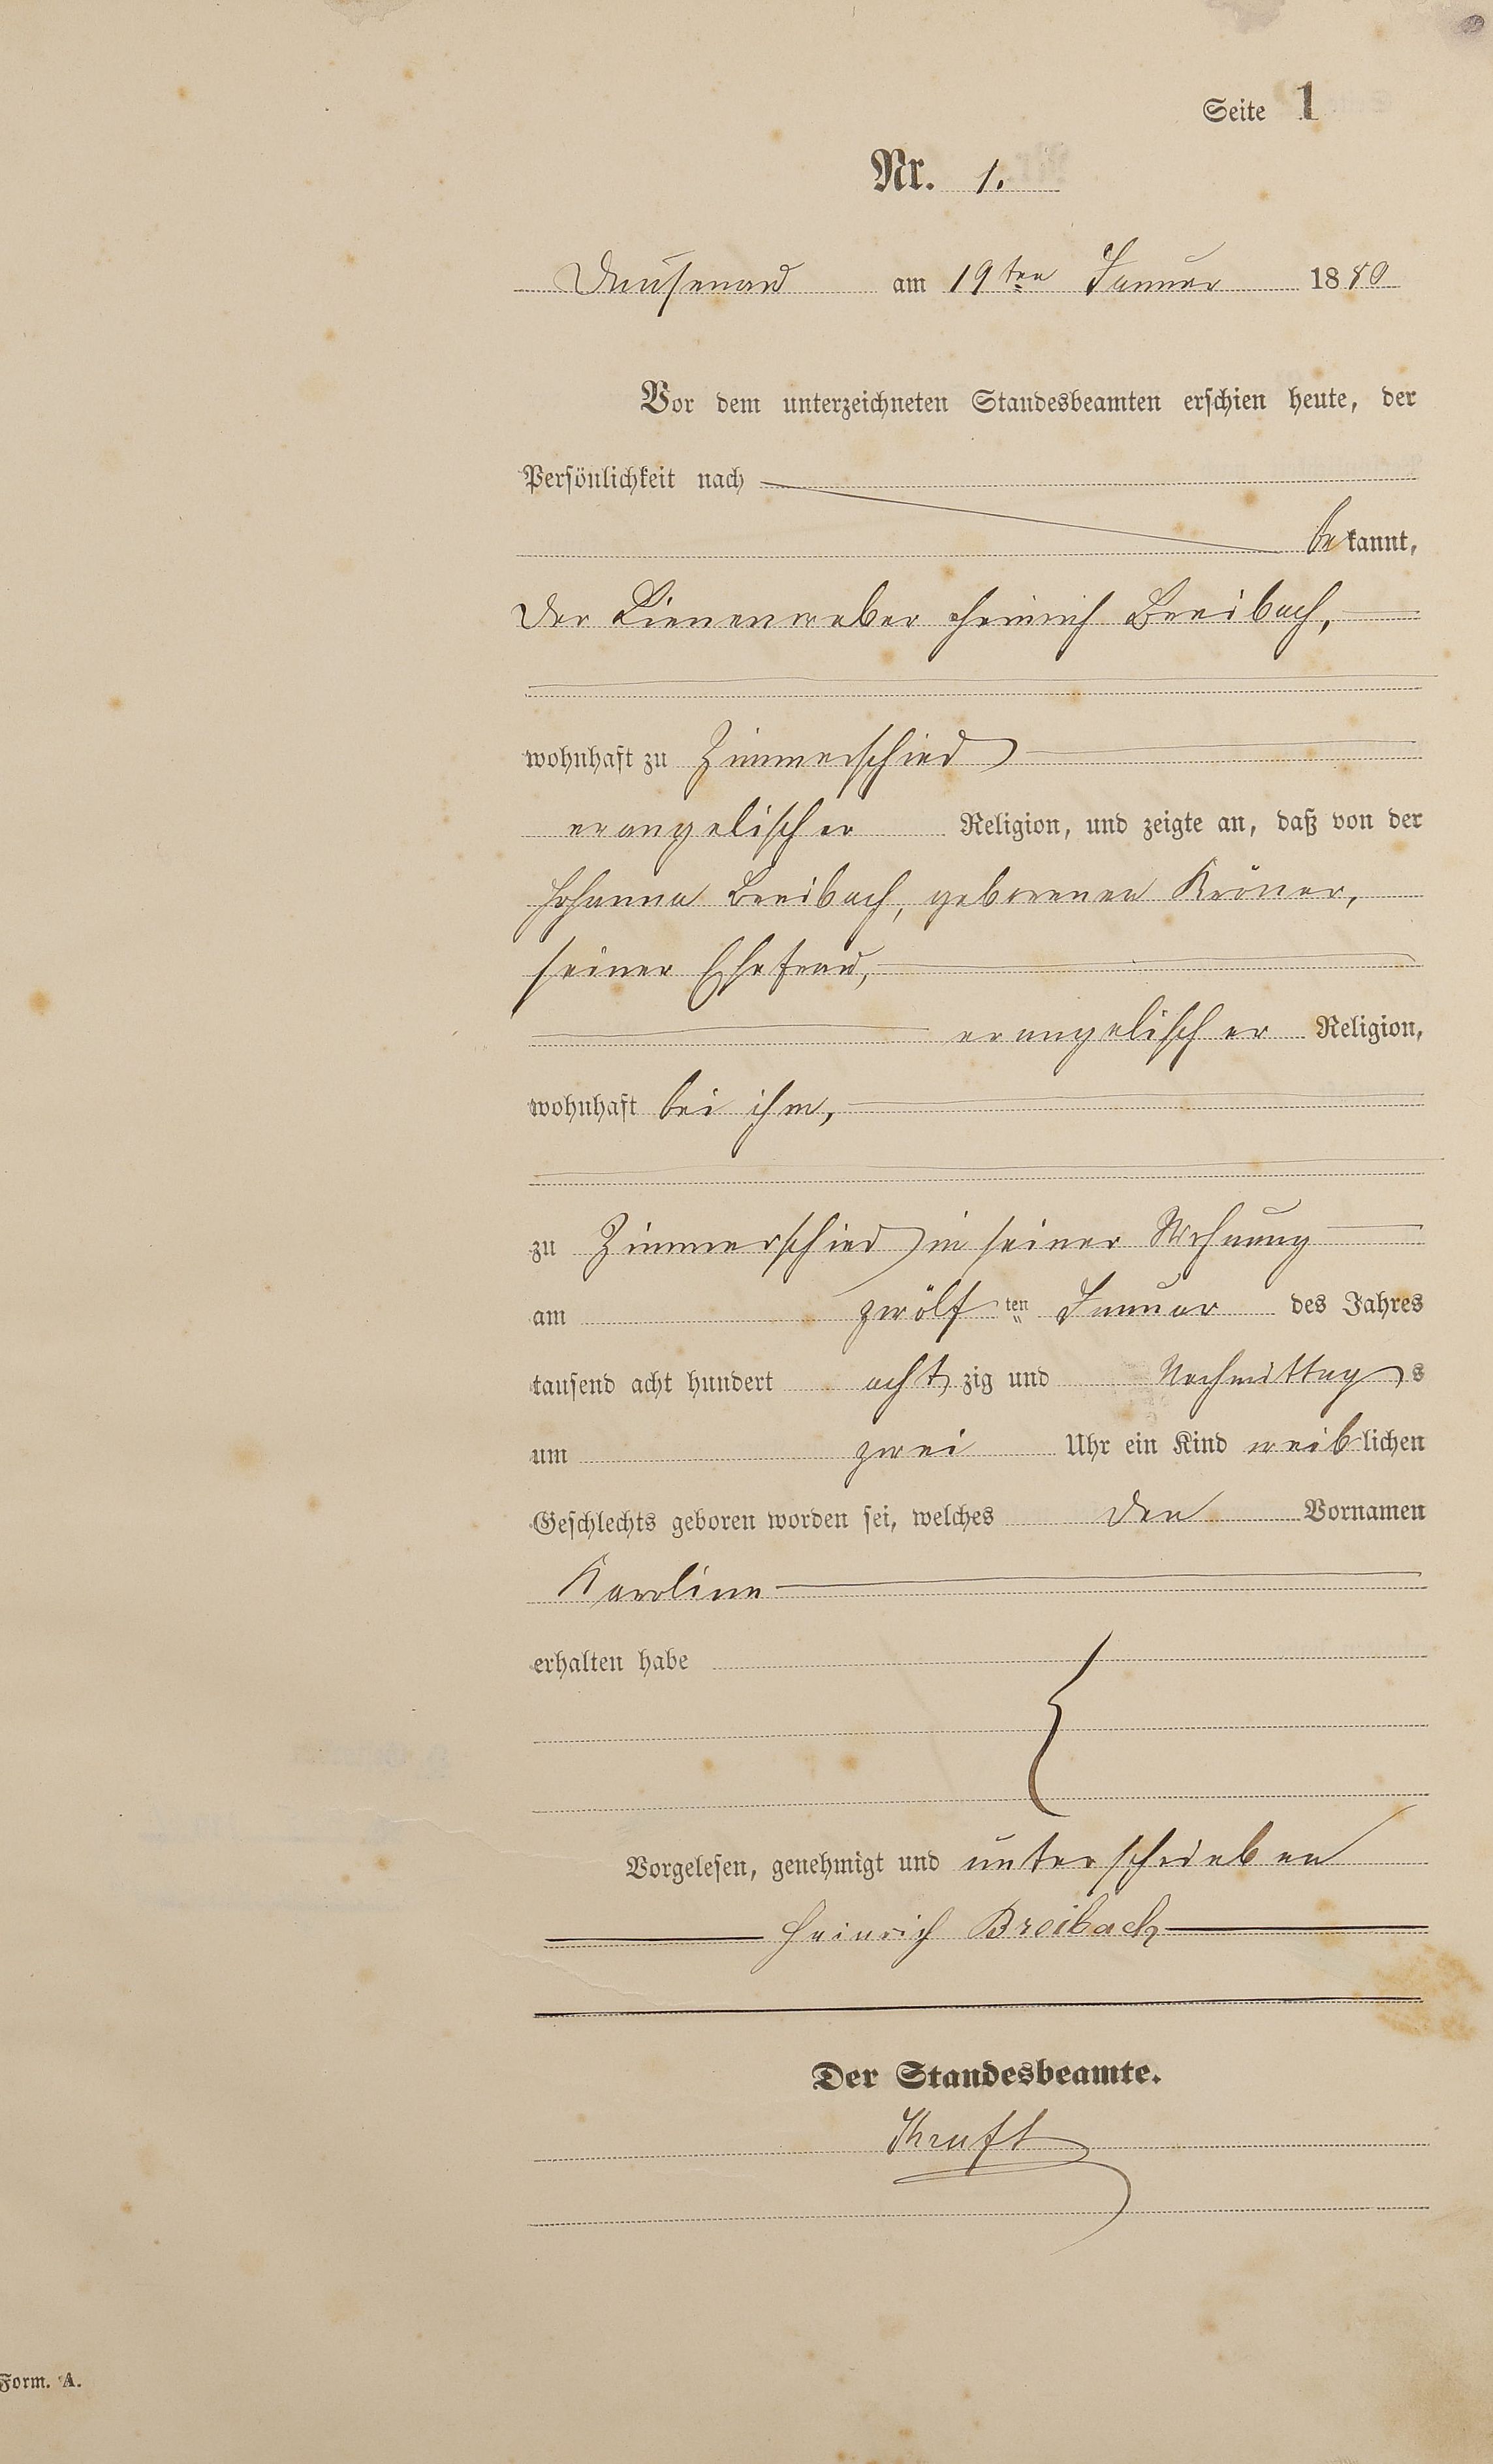 Seite 1
Nr. 1.
Dausenau am 19ten Januar 1880
Vor dem unterzeichneten Standesbeamten erschien heute, der
Persönlichkeit nach
bekannt,
der Leinenweber Heinrich Breibach,
wohnhaft zu Zimmerschied
evangelischer Religion, und zeigte an, daß von der
Johanna Breibach, geborenen Kröner,
seiner Ehefrau,
evangelischer Religion,
wohnhaft bei ihm,
zu Zimmerschied in seiner Wohnung
am zwölften Januar des Jahres
tausend acht hundert achtzig und Nachmittags
um zwei Uhr ein Kind weiblichen
Geschlechts geboren worden sei, welches den Vornamen
Karoline
erhalten habe
Vorgelesen, genehmigt und unterschrieben
Heinrich Breibach
Der Standesbeamte.
Kraft
Form. A.